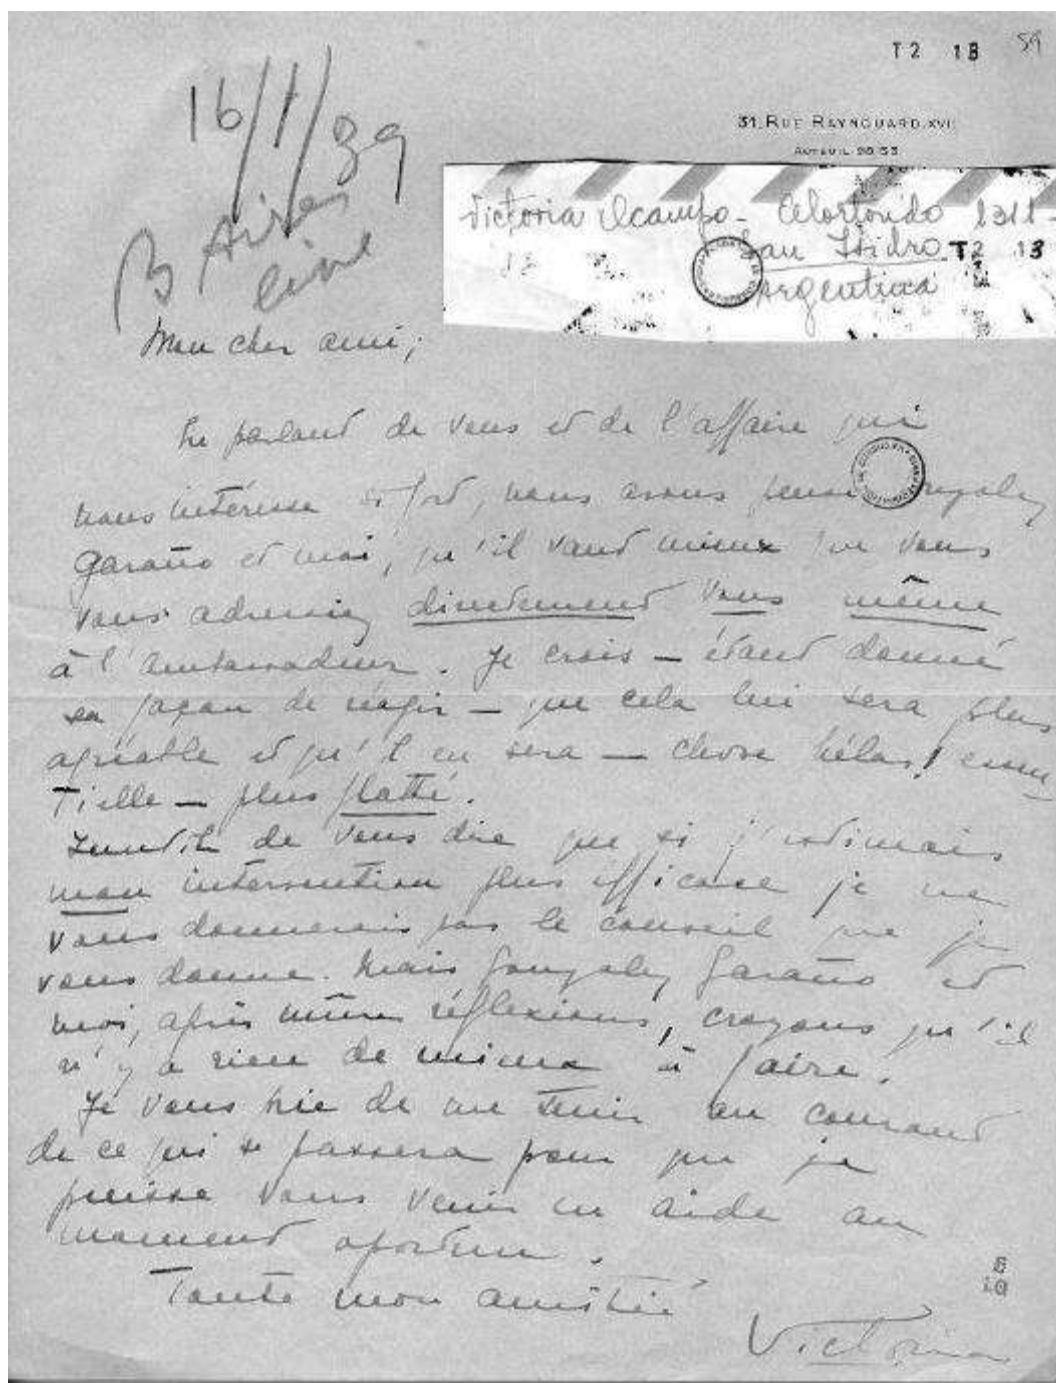 T2 13 59
16/1/39
31, RUE RAYNOUARD. XVI
AUTEUIL
B Aires
Victoria Ocampo -
San Isidro T2 13
Argentina
Mon cher ami,
En parlant de vous et de l'affaire qui
nous intéresse si fort, nous avons pensé
Garaño et moi, qu'il vaut mieux que vous
vous adressiez directement vous même
à l'ambassadeur. Je crois — étant donné
sa façon de réagir — que cela lui sera plus
agréable et qu'il en sera — chose hélas! essen
tielle — plus flatté.
Inutile de vous dire que si j'estimais
mon intervention plus efficace je ne
vous donnerais pas le conseil que je
vous donne. Mais Gonzalez Garaño et
moi, après mûres réflexions, croyons qu'il
n'y a rien de mieux à faire.
Je vous prie de me tenir au courant
de ce qui se passera pour que je
puisse vous venir en aide au
moment oportun.
Toute mon amitié
Victoria